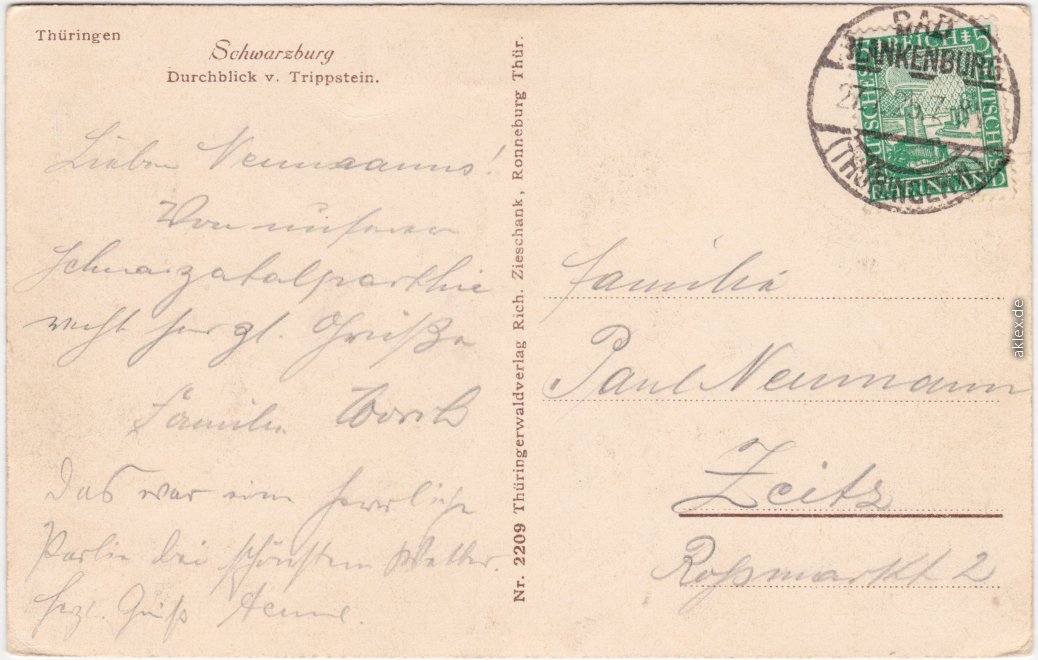 Thüringen
Schwarzburg
Durchblick v. Trippstein.
Lieben Neumanns!
Von unserer
Schwarzatalparthie
recht herzl. Grüße
Familie
Das war eine herrliche
Partie bei schönstem Wetter.
Herzl. Gruß Aenne.
Nr. 2209 Thüringerwaldverlag Rich. Zieschank, Ronneburg Thür.
BAD
BLANKENBURG
27. 25. 7-8
(THÜRINGERW.)
DEUTSCHES REICH 5
Familie
Paul Neumann
Zeitz
Roßmarkt 2
aklex.de